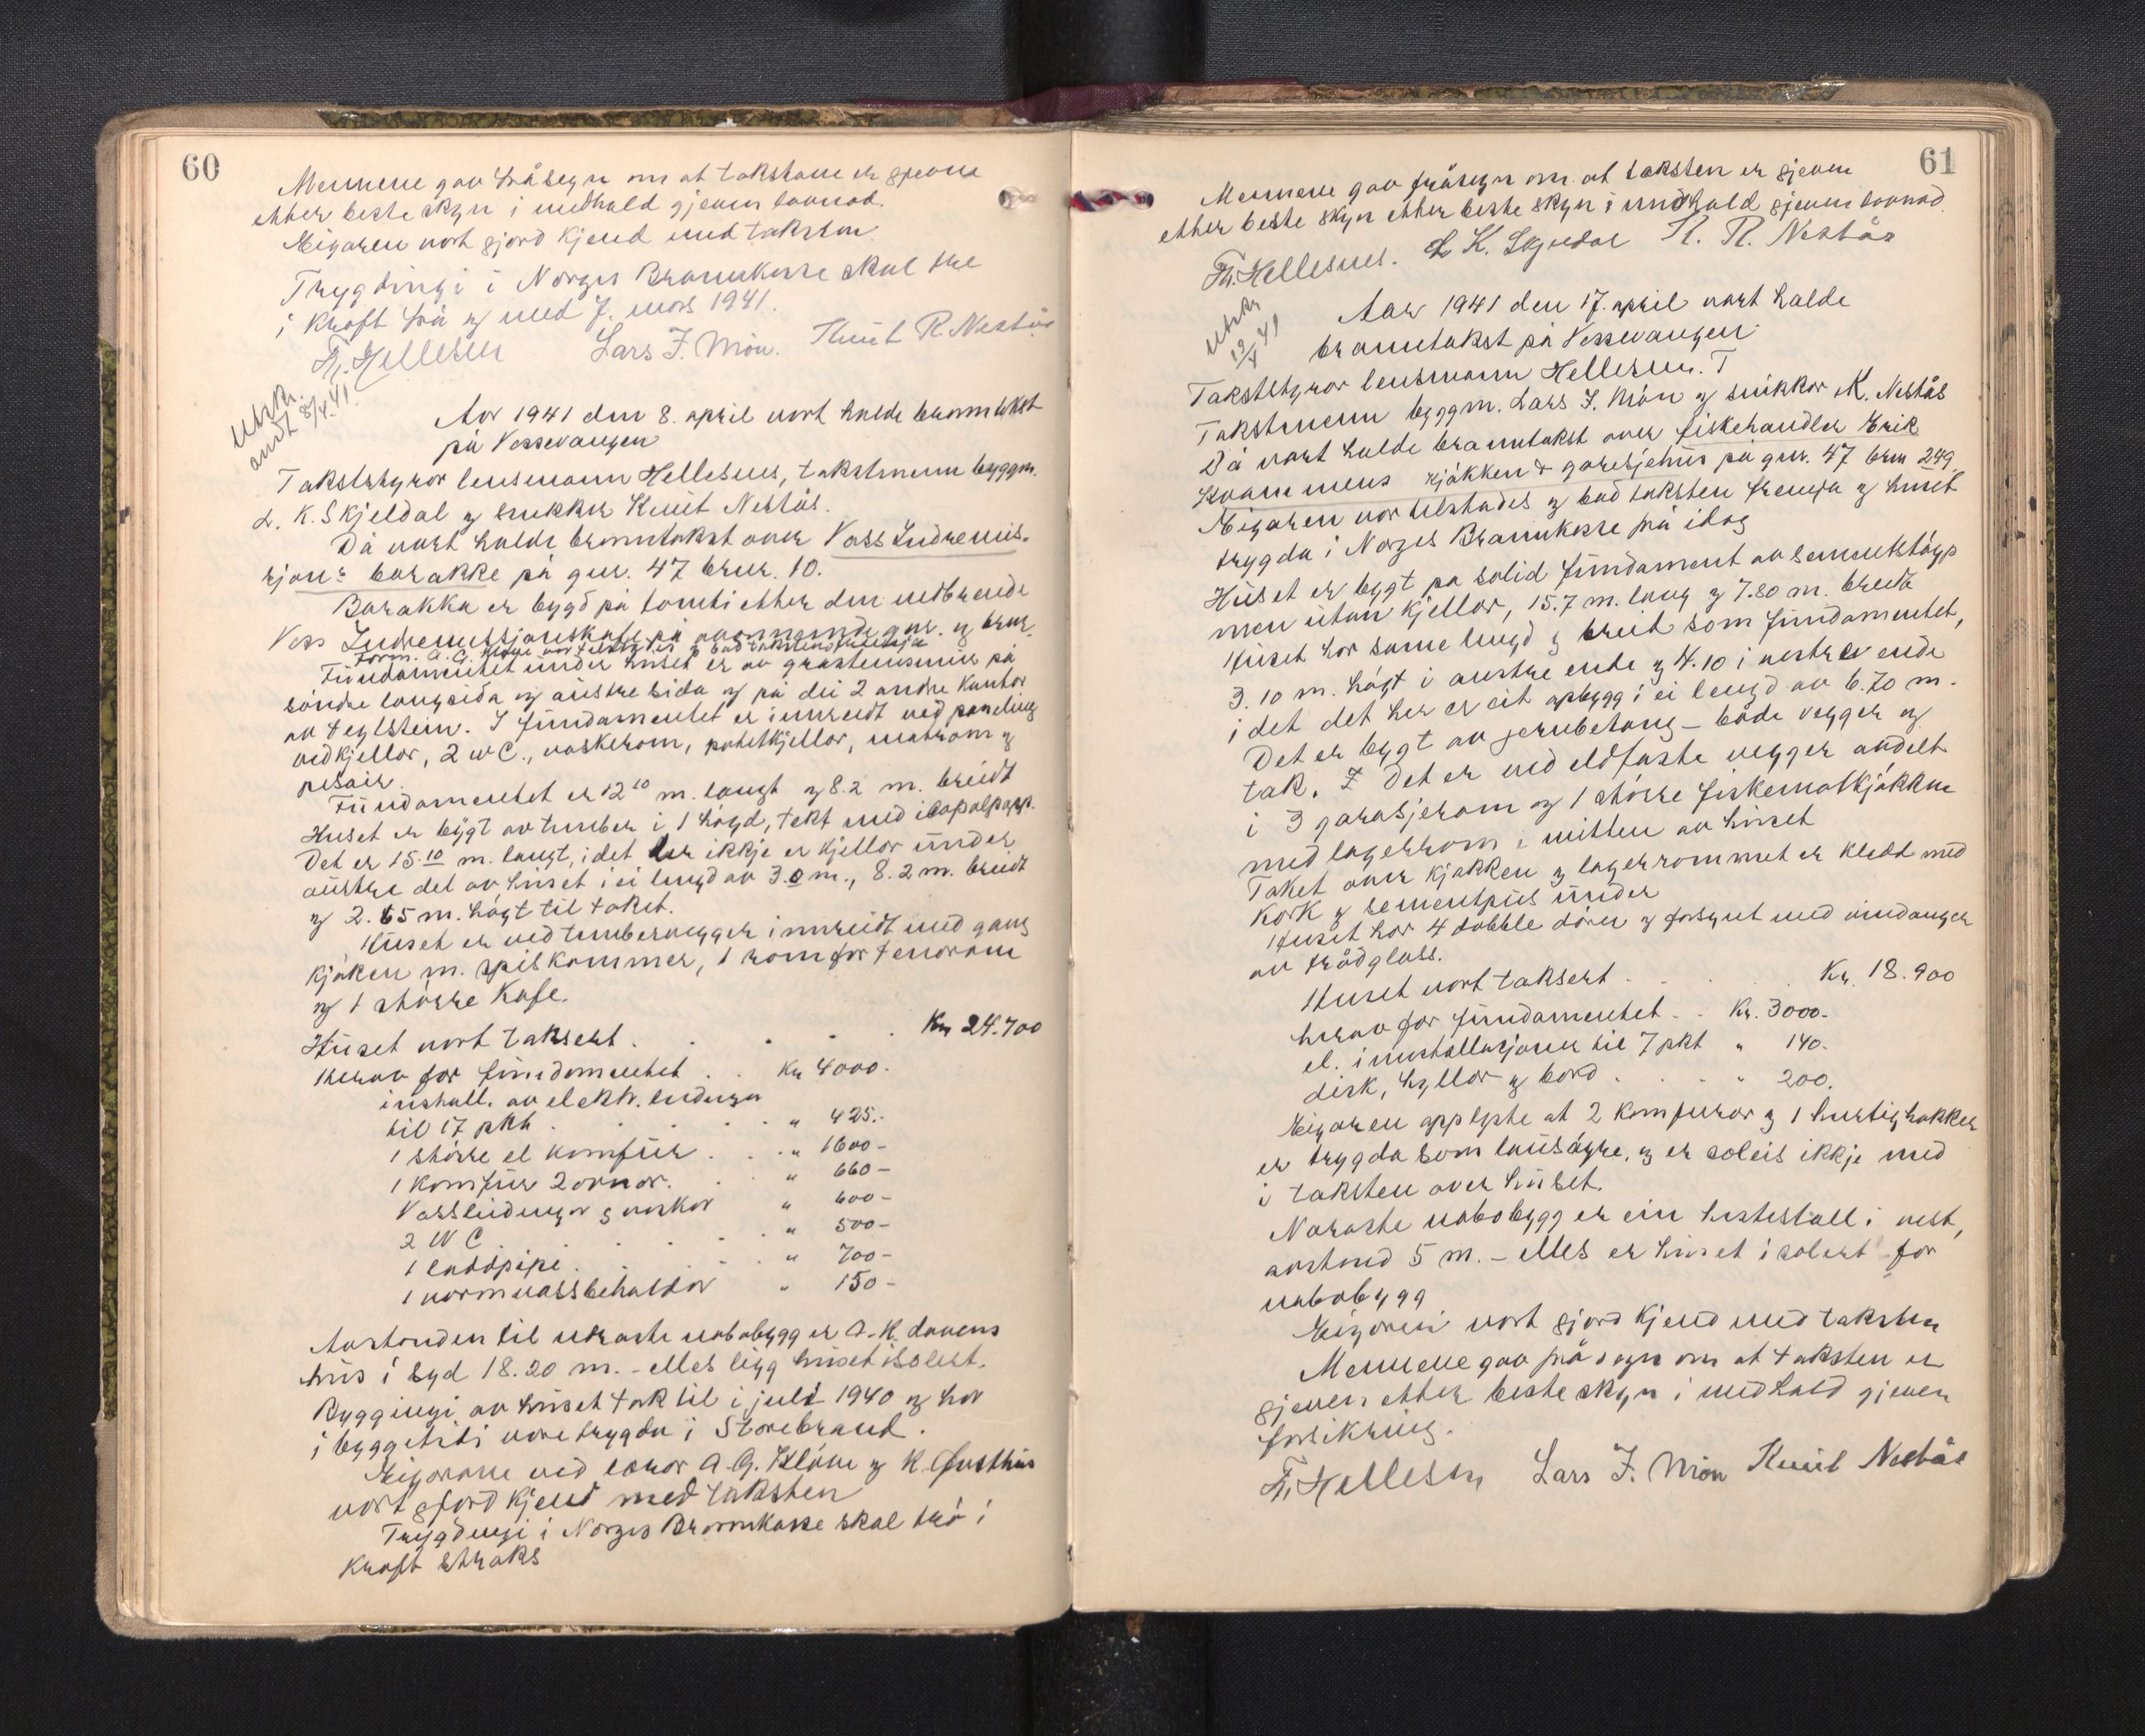 60
Mennene gav fråsegn om at takstane er gjevne
etter beste skyn i medhald gjeven lovnad.
Eigaren vart gjord kjend med taksten.
Trygdingi i Norges Brannkasse skal tre
i kraft frå og med 7. mars 1941.
Fr. Hellesen Lars J. Møn. Knut R. Nestås
Utskr.
8/4.41.
Aar 1941 den 8. april vart halde branntakst
på Vossevangen
Takststyrar lensmann Hellesnes, takstmenn byggm.
L. K. Skjeldal og snikkar Knut Nestås.
Då vart halde branntakst over Voss Indremis-
sjons barakke på gnr. 47 brnr. 10.
Barakka er bygd på tomti etter den nedbrende
Voss Indremissjonskafe på ovannemnde gnr. og brnr.
Form. A. G. Kløve var tilstades og bad taksten fremja
Fundamentet under huset er av gråsteinsmur på
søndre langsida og austre sida og på dei 2 andre kantar
av teglstein. I fundamentet er innreidt ved paneling
vedkjellar, 2 WC., vaskerom, potetkjellar, matrom og
pissoir.
Fundamentet er 12 10 m. langt og 8.2 m. breidt
Huset er bygt av tømber i 1 høgd, tekt med icopalpapp.
Det er 15.10 m. langt, idet der ikkje er kjellar under
austre del av huset i ei lengd av 3.0 m., 8.2 m. breidt
og 2.65 m. høgt til taket.
Huset er ved tømbervegger innreidt med gang
kjøken m. spiskammer, 1 rom for tenarane
og 1 større Kafe.
Huset vart taksert . . . . Kr 24.700
Herav for fundamentet . . Kr 4000.-
install. av elektr. leidningar
til 17 pkt . . . . . " 425.-
1 større el komfur . . . " 1600-
1 komfur 2 ovnar. . . " 660-
Vassleidningar og vaskar " 600-
2 WC . . . . . " 500-
1 luftpipe . . . . " 700-
1 varmvassbehaldar " 150-
Avstanden til næraste nabobygg er A. K. Lavens
hus i syd 18.20 m. - elles ligg huset isolert.
Byggingi av huset tok til i juli 1940 og har
i byggetidi vore trygda i Storebrand.
Eigarane ved lærar A. G. Kløve og K. Gjersthus
vart gjord kjend med taksten
Trygdingi i Norges Brannkasse skal trå i
kraft straks
61
Mennene gav fråsegn om at taksten er gjeven
etter beste skyn etter beste skyn i medhald gjeven lovnad.
Fr. Hellesnes. L K. Skjeldal K. R. Nestås
Utskr
19/4 41
Aar 1941 den 17. april vart halde
branntakst på Vossevangen
Takststyrar lensmann Hellesnes. T
Takstmenn byggm. Lars J. Møn og snikkar K. Nestås
Då vart halde branntakst over fiskehandler Erik
Kvammens kjøkken & garasjehus på gnr. 47 brnr 249.
Eigaren var tilstades og bad taksten fremja og huset
trygda i Norges Brannkasse frå idag
Huset er bygt på solid fundament av sementstøyp
men utan kjellar, 15.7 m. lang og 7.80 m. breida
Huset har same lengd og breid som fundamentet,
3.10 m. høgt i austre ende og 4.10 i vestre ende
i det det her er eit opbygg i ei lengd av 6.70 m.
Det er bygt av jernbetong - både vegger og
tak. Det er ved eldfaste vegger avdelt
i 3 garasjerom og 1 større fiskematkjøkken
med lagerrom i mitten av huset
Taket over kjøkken og lagerrommet er kledd med
kork og sementpuss under
Huset har 4 dobble dører og forsynt med vindauger
av trådglass.
Huset vart taksert . . . . Kr. 18.900
herav for fundamentet . . Kr. 3000.-
el. innstallasjonen til 7 pkt " 140.-
disk, hyllor og bord . . . " 200.
Eigaren opplyste at 2 komfurar og 1 hurtighakker
er trygda som lausøyre, og er soleis ikkje med
i taksten over huset.
Næraste nabobygg er ein hestestall i vest,
avstand 5 m. - elles er huset isolert for
nabobygg
Eigaren vart gjord kjend med taksten
Mennene gav fråsegn om at taksten er
gjeven etter beste skyn i medhald gjeven
forsikring.
Fr. Hellesen Lars J. Møn Knut Nestås